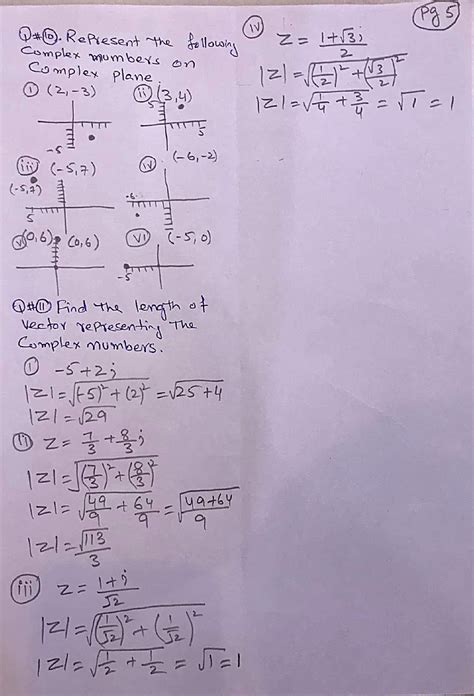 Pg 5
Q#10. Represent the following
Complex numbers on
Complex plane
i (2,-3) ii (3,4)
5
5
-5
iii (-5,7) iv (-6,-2)
(-5,7)
-6
5
v (0,6) (0,6) vi (-5,0)
-5
Q#11 Find the length of
vector representing the
Complex numbers.
i -5+2i
|Z|=√(-5)²+(2)² =√25+4
|Z|=√29
ii Z= 7/3 + 8/3 i
|Z|=√(7/3)²+(8/3)²
|Z|=√49/9 + 64/9 = √49+64/9
|Z|=√113/3
iii Z= 1+i/√2
|Z|=√(1/√2)²+(1/√2)²
|Z|=√1/2 + 1/2 = √1=1
iv Z= 1+√3i/2
|Z|=√(1/2)²+(√3/2)²
|Z|=√1/4 + 3/4 = √1 = 1